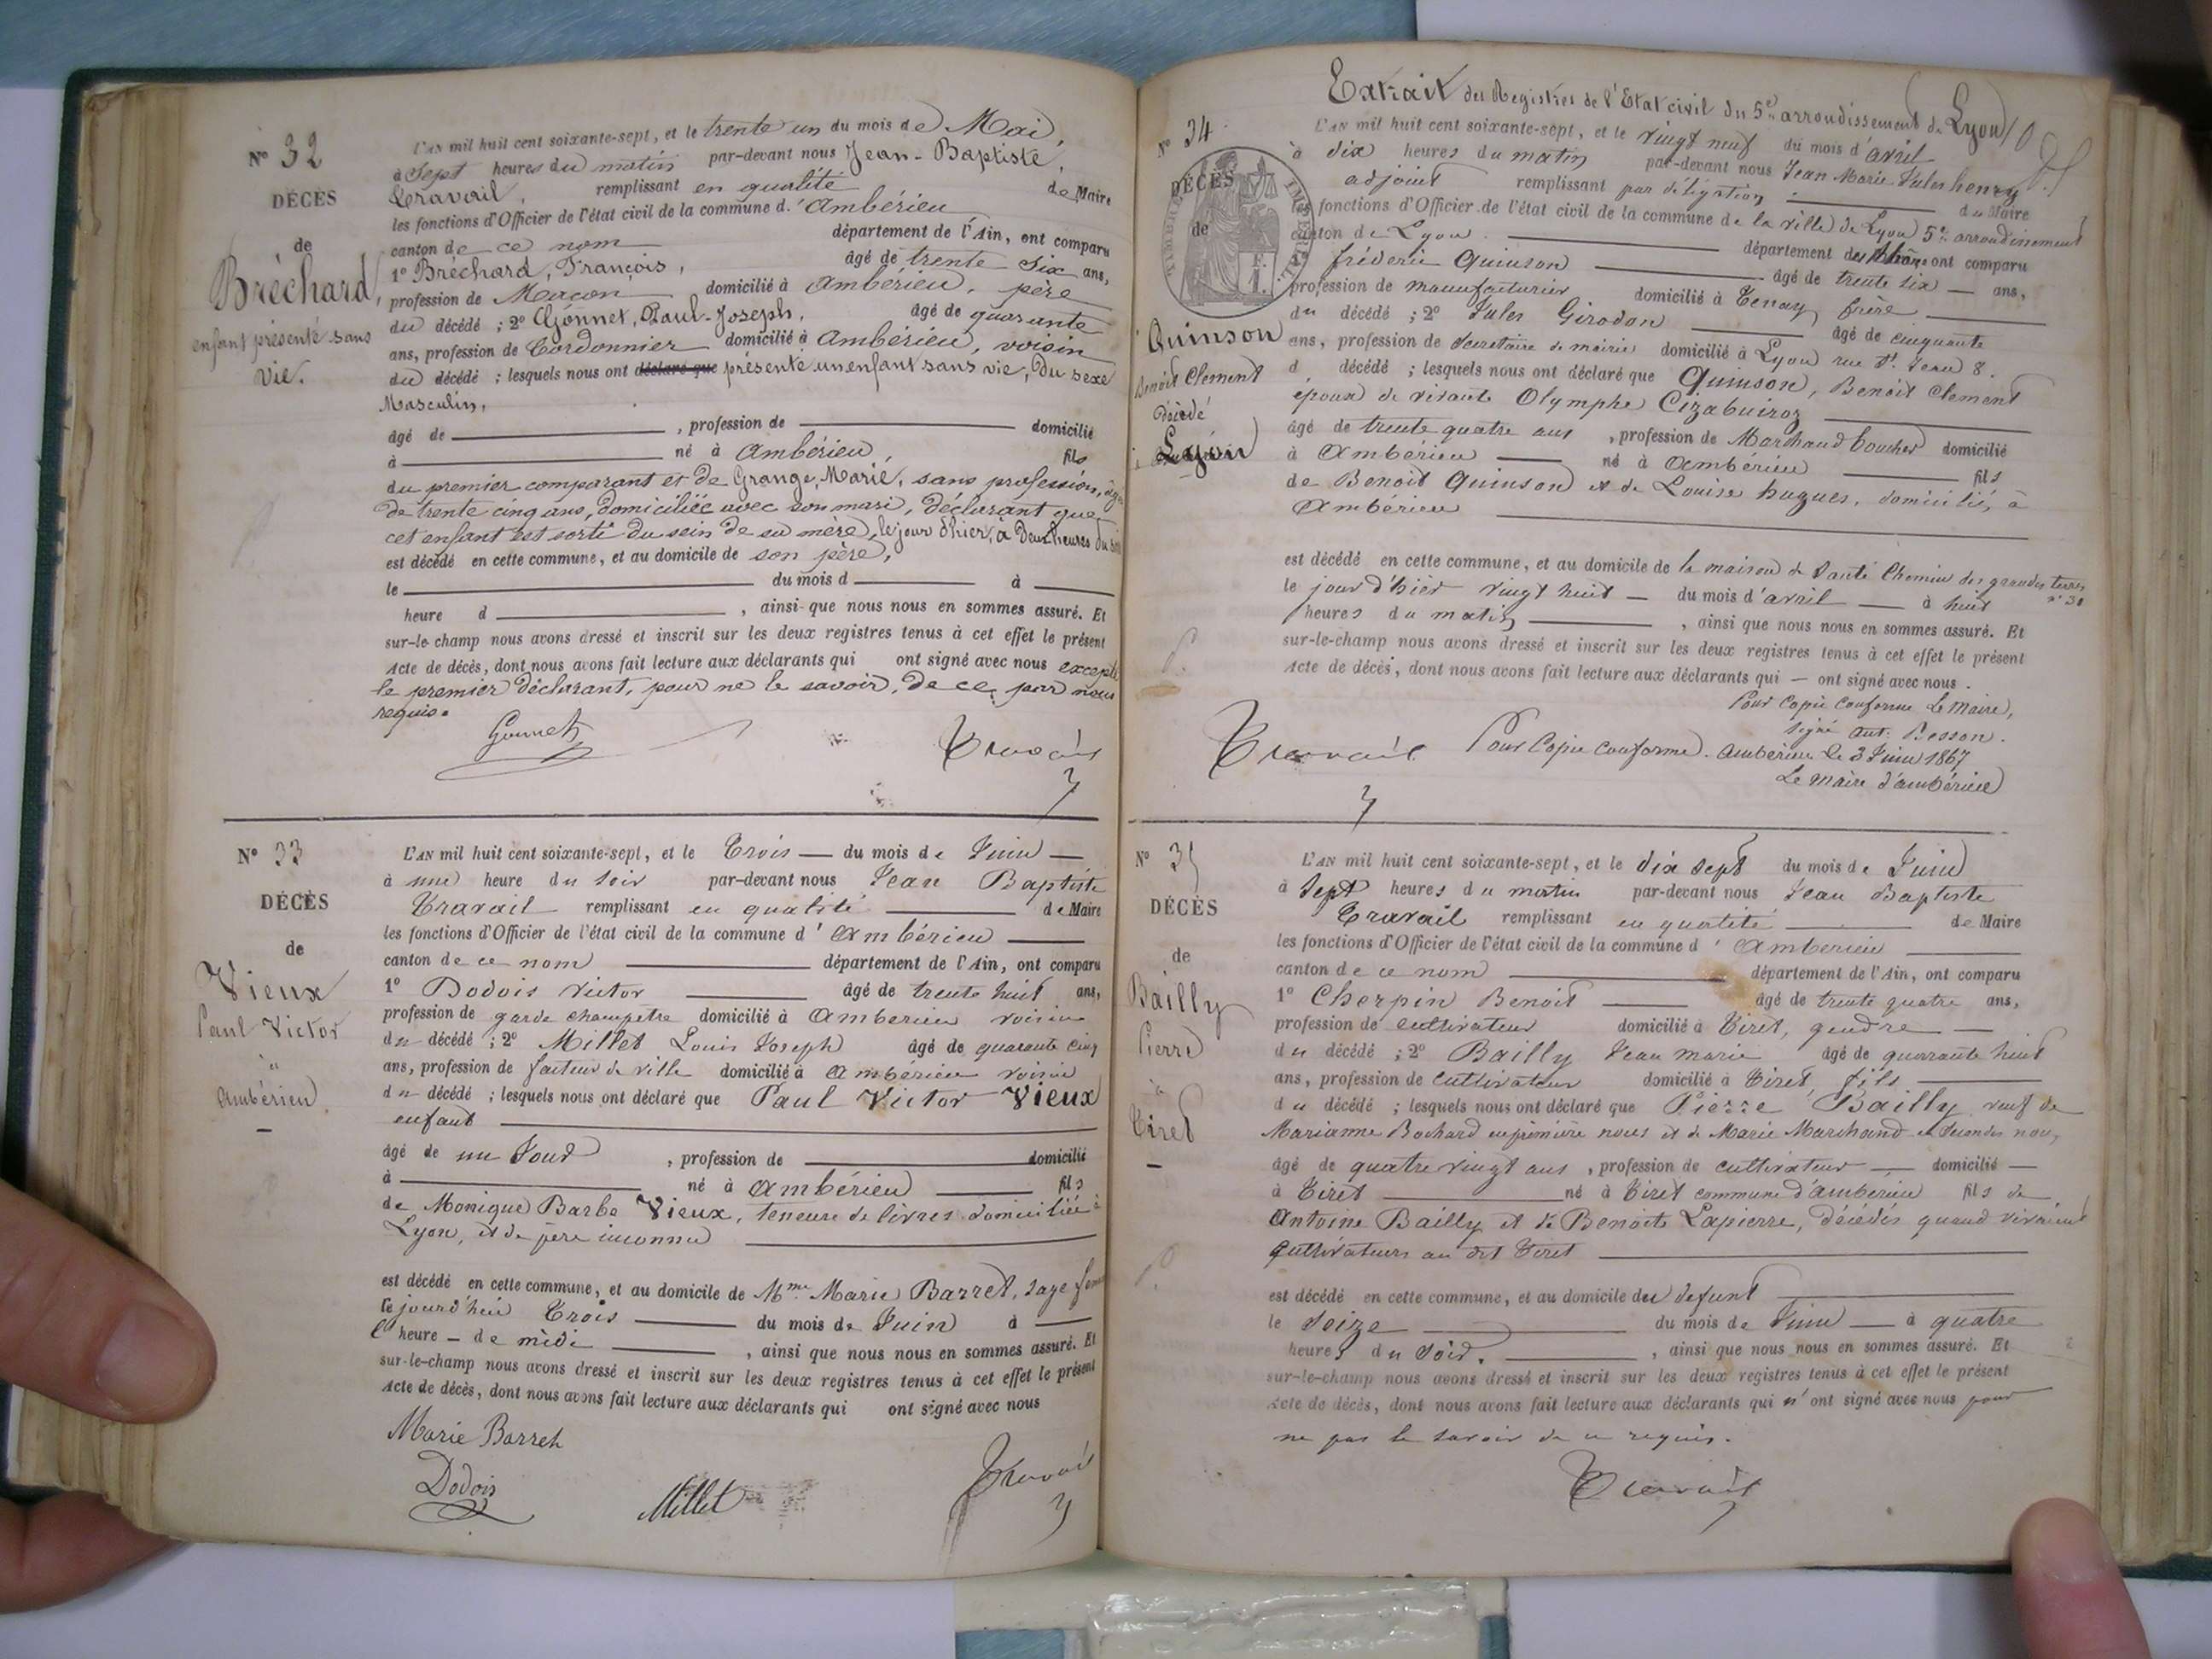 N° 32
DÉCÈS
de
Bréchard,
enfant présenté sans
vie.
L'AN mil huit cent soixante-sept, et le trente un du mois de Mai,
à Sept heures du matin par-devant nous Jean-Baptiste,
Travail, remplissant en qualité de Maire
les fonctions d'Officier de l'état civil de la commune d'Ambérieu
canton de ce nom département de l'Ain, ont comparu
1° Bréchard, François, âgé de trente six ans,
profession de Maçon domicilié à Ambérieu, père
du décédé ; 2° Gonnet, Paul-Joseph, âgé de quarante
ans, profession de Cordonnier domicilié à Ambérieu, voisin
du décédé ; lesquels nous ont déclaré que présenté un enfant sans vie, du sexe
Masculin,
âgé de , profession de domicilié
à né à Ambérieu, fils
du premier comparant et de Grange, Marie, sans profession, âgée
de trente cinq ans, domiciliée avec son mari, déclarant que
cet enfant est sorti du sein de sa mère, le jour d'hier, à Deux heures du soir
est décédé en cette commune, et au domicile de son père,
le du mois d à
heure d , ainsi que nous nous en sommes assuré. Et
sur-le-champ nous avons dressé et inscrit sur les deux registres tenus à cet effet le présent
Acte de décès, dont nous avons fait lecture aux déclarants qui ont signé avec nous excepté
le premier déclarant, pour ne le savoir, de ce par nous
requis.
Gonnet Travail
N° 33
DÉCÈS
de
Vieux
Paul Victor
à
Ambérieu
L'AN mil huit cent soixante-sept, et le Trois du mois de Juin
à une heure du soir par-devant nous Jean Baptiste
Travail remplissant en qualité de Maire
les fonctions d'Officier de l'état civil de la commune d'Ambérieu
canton de ce nom département de l'Ain, ont comparu
1° Dodois Victor âgé de trente huit ans,
profession de garde champêtre domicilié à Amberieu voisin
du décédé ; 2° Millet Louis Joseph âgé de quarante cinq
ans, profession de facteur de ville domicilié à Amberieu voisin
du décédé ; lesquels nous ont déclaré que Paul Victor Vieux
enfant
âgé de un Jour , profession de domicilié
à né à Ambérieu fils
de Monique Barbe Vieux, teneure de livres domiciliée à
Lyon, et de père inconnu
est décédé en cette commune, et au domicile de Mme Marie Barret, sage femme
le jourd'hui Trois du mois de Juin à
l' heure de midi , ainsi que nous nous en sommes assuré. Et
sur-le-champ nous avons dressé et inscrit sur les deux registres tenus à cet effet le présent
Acte de décès, dont nous avons fait lecture aux déclarants qui ont signé avec nous
Marie Barret
Dodois Millet Travail
Extrait des Registres de l'Etat civil du 5e arrondissement de Lyon
N° 34
DÉCÈS
de
TIMBRE IMPÉRIAL
Quinson
Benoit Clement
décédé
à Lyon
L'AN mil huit cent soixante-sept, et le vingt neuf du mois d'avril
à dix heures du matin par-devant nous Jean Marie Jules henry
adjoint remplissant par délégation du Maire
les fonctions d'Officier de l'état civil de la commune de la ville de Lyon 5e arrondissement
canton de Lyon département du Rhône ont comparu
fréderic Quinson âgé de trente six ans,
profession de manufacturier domicilié à Tenay frère
du décédé ; 2° Jules Girodon âgé de cinquante
ans, profession de Secretaire de mairie domicilié à Lyon rue St. Jean 8.
d décédé ; lesquels nous ont déclaré que Quinson, Benoit Clement
époux de vivante Olymphe Cizabuiroz
âgé de trente quatre ans , profession de Marchand boucher domicilié
à Ambérieu né à Ambérieu fils
de Benoit Quinson et de Louise hugues, domiciliés à
Ambérieu
est décédé en cette commune, et au domicile de la maison de Santé Chemin des grandes terres
le jour d'hier vingt huit du mois d'avril à huit
heures du matin , ainsi que nous nous en sommes assuré. Et
sur-le-champ nous avons dressé et inscrit sur les deux registres tenus à cet effet le présent
Acte de décès, dont nous avons fait lecture aux déclarants qui ont signé avec nous.
Pour Copie Conforme Le Maire,
Signé Ant. Besson.
Travail Pour Copie Conforme. Ambérieu le 3 Juin 1867
Le Maire d'ambérieu
N° 35
DÉCÈS
de
Bailly
Pierre
à
Tiret
L'AN mil huit cent soixante-sept, et le dix sept du mois de Juin
à Sept heures du matin par-devant nous Jean Baptiste
Travail remplissant en qualité de Maire
les fonctions d'Officier de l'état civil de la commune d'Amberieu
canton de ce nom département de l'Ain, ont comparu
1° Cherpin Benoit âgé de trente quatre ans,
profession de cultivateur domicilié à Tiret, gendre
du décédé ; 2° Bailly Jean marie âgé de quarante huit
ans, profession de Cultivateur domicilié à Tiret, fils
du décédé ; lesquels nous ont déclaré que Pierre Bailly veuf de
Marianne Bochard en première noces et de Marie Marchand en Secondes noces,
âgé de quatre vingt ans , profession de cultivateur domicilié
à Tiret né à Tiret commune d'ambérieu fils de
Antoine Bailly et de Benoite Lapierre, décédés quand vivaient
Cultivateurs au dit Tiret
est décédé en cette commune, et au domicile du defunt
le Seize du mois de Juin à quatre
heures du Soir. , ainsi que nous nous en sommes assuré. Et
sur-le-champ nous avons dressé et inscrit sur les deux registres tenus à cet effet le présent
Acte de décès, dont nous avons fait lecture aux déclarants qui n'ont signé avec nous pour
ne pas le savoir de ce requis.
Travail